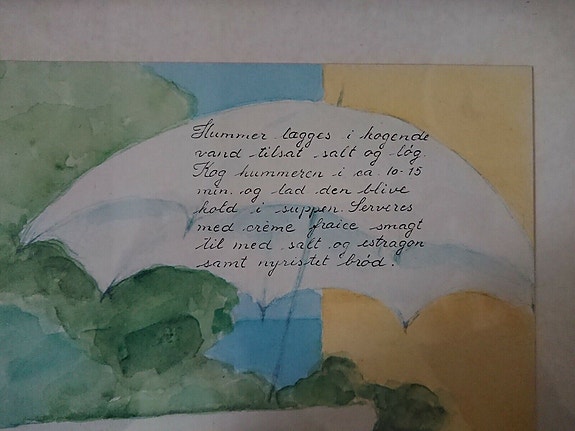 Hummer lægges i kogende
vand tilsat salt og løg.
Kog hummeren i ca. 10-15
min. og lad den blive
kold i suppen. Serveres
med crème fraice smagt
til med salt og estragon
samt nyristet brød.